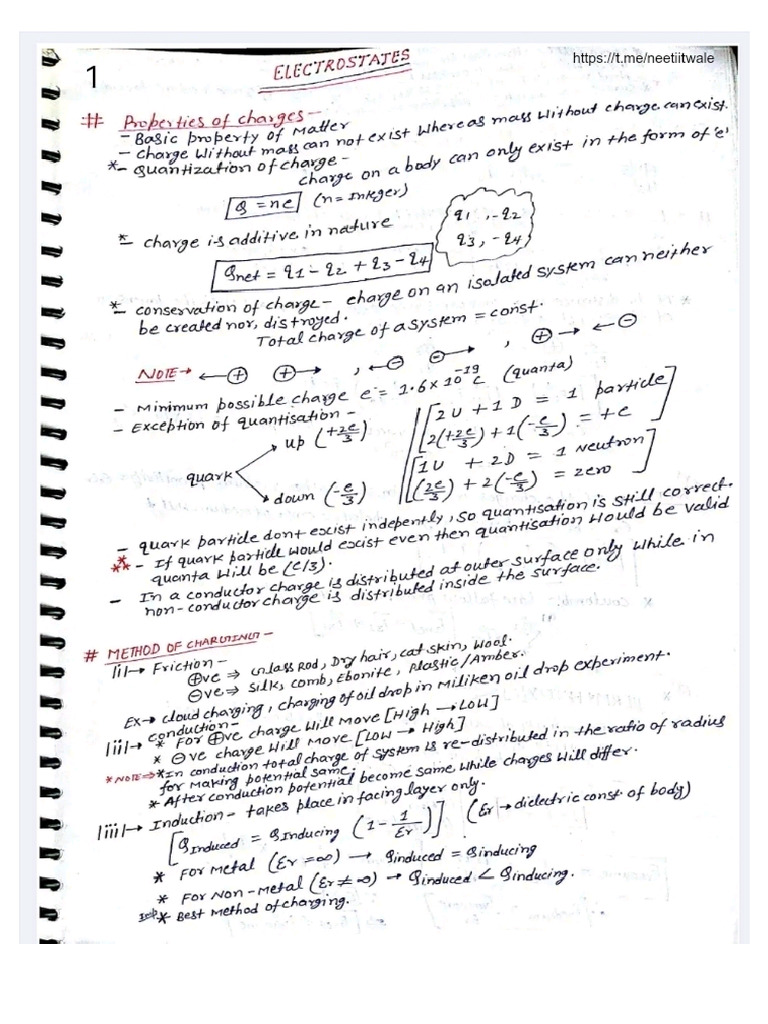 https://t.me/neetiitwale
1
ELECTROSTATES
# Properties of charges -
- Basic property of Matter
- Charge Without mass can not exist Where as mass Without charge can exist.
*- Quantization of charge -
charge on a body can only exist in the form of 'e'
Q = ne (n = Integer)
q1 , -q2
q3 , -q4
*- charge is additive in nature
Qnet = q1 - q2 + q3 - q4
*- conservation of charge - charge on an isolated system can neither
be created nor, distroyed.
Total charge of a system = const.
NOTE → ← ⊕ ⊕ → , ← ⊖ ⊖ → , ⊕ → ← ⊖
- Minimum possible charge e = 1.6 × 10⁻¹⁹ C (quanta)
- Exception of quantisation -
quark
up (+2e/3)
down (-e/3)
[2U + 1D = 1 particle
2(+2e/3) + 1(-e/3) = +e]
[1U + 2D = 1 neutron
(2e/3) + 2(-e/3) = zero]
- quark particle dont excist indepently, so quantisation is still correct.
** - If quark particle would excist even then quantisation would be valid
quanta will be (e/3).
- In a conductor charge is distributed at outer surface only while in
non-conductor charge is distributed inside the surface.
# METHOD OF CHARGING -
|i|→ Friction -
⊕ve ⇒ Glass Rod, Dry hair, cat skin, Wool.
⊖ve ⇒ Silk, Comb, Ebonite, Plastic/Amber.
Ex→ cloud charging, charging of oil drop in Miliken oil drop experiment.
|ii|→ conduction -
* For ⊕ve charge Will move [High → LOW]
* ⊖ve charge Will move [LOW → High]
* NOTE ⇒ * In conduction total charge of system is re-distributed in the ratio of radius
for making potential same.
* After conduction potential become same while charges will differ.
|iii|→ Induction - takes place in facing layer only.
[QInduced = QInducing (1 - 1/Er)] (Er → dielectric const of body)
* For Metal (Er = ∞) → qinduced = qinducing
* For Non-Metal (Er ≠ ∞) → qinduced < qinducing.
Imp * Best Method of charging.